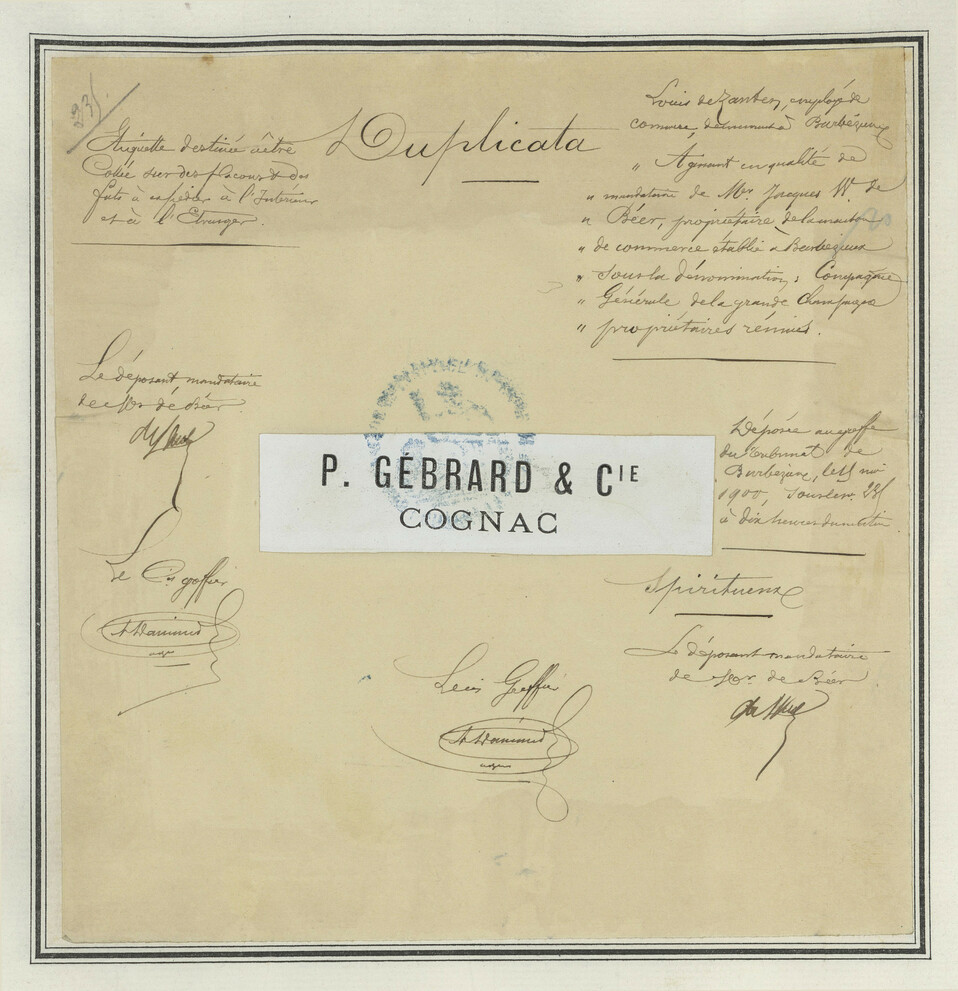 Duplicata
Etiquette destinée à être
Collée sur des flacons & des
futs à expédier à l'Intérieur
et à l'Etranger.
Louis de employé de
commerce, demeurant à Barbézieux
" Agissant en qualité de
" mandataire de Mr Jacques W. de
" Béer, propriétaire de la maison
" de commerce établie à Barbézieux
" sous la dénomination: Compagnie
" Générale de la grande Champagne
" propriétaires réunies.
Le déposant mandataire
de Mr de Béer
P. GÉBRARD & CIE
COGNAC
Déposée au greffe
du Tribunal de
Barbézieux, le mai
1900, sous le no
à dix heures du matin
Le Cis greffier
Spiritueux
Le déposant mandataire
de Mr. de Béer
Le Cis Greffier